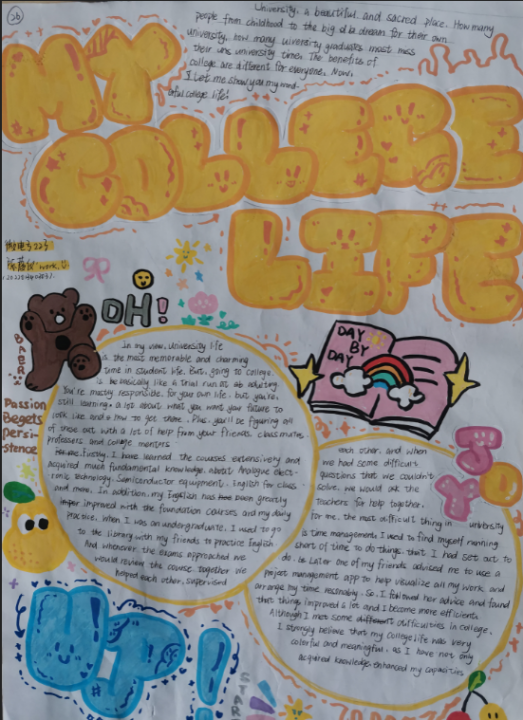 26
University, a beautiful and sacred place. How many
people from childhood to the big old dream for their own
university, how many university graduates most miss
their own university time. The benefits of
college are different for everyone. Now,
let me show you my wond-
erful college life!
MY
COLLEGE
LIFE
微电子223
OH!
BAER
In my view, University life
is the most memorable and charming
time in student life. But, going to college
is basically like a trial run at adulting.
You're mostly responsible for your own life, but you're
still learning a lot about what you want your future to
look like and how to get there. Plus, you'll be figuring all
of these out with a lot of help from your friends, classmates
professors and college mentors.
Firstly, I have learned the courses extensively and
acquired much fundamental knowledge about Analogue elect-
ronic technology, Semiconductor equipment, English for class
and more. In addition, my English has been greatly
improved with the foundation courses and my daily
practice. When I was an undergraduate, I used to go
to the library with my friends to practice English.
And whenever the exams approached we
would review the course together. We
helped each other, supervised
Passion
Begets
persi-
stence
DAY
BY
DAY
JOY
each other, and when
we had some difficult
questions that we couldn't
solve, we would ask the
teachers for help together.
For me, the most difficult thing in university
is time management. I used to find myself running
short of time to do things that I had set out to
do. Later one of my friends advised me to use a
project management app to help visualize all my work and
arrange my time reasonably. So, I followed her advice and found
that things improved a lot and I become more efficient.
Although I met some difficulties in college,
I strongly believe that my college life was very
colorful and meaningful, as I have not only
acquired knowledge, enhanced my capacities
UP!
STAR